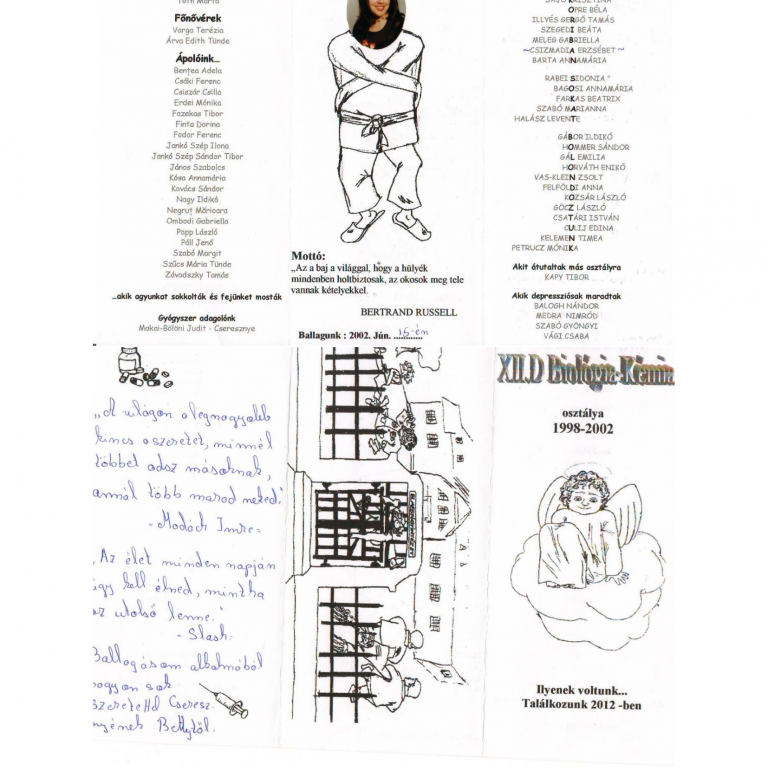 Főnővérek
Varga Terézia
Árva Edith Tünde
Ápolóink...
Bentea Adela
Csőki Ferenc
Csiszár Csilla
Erdei Mónika
Fazekas Tibor
Finta Dorina
Fodor Ferenc
Jankó Szép Ilona
Jankó Szép Sándor Tibor
János Szabolcs
Kósa Annamária
Kovács Sándor
Nagy Ildikó
Negruț Mărioara
Ombodi Gabriella
Papp László
Páll Jenő
Szabó Margit
Szűcs Mária Tünde
Závodszky Tamás
...akik agyunkat sokkolták és fejünket mosták
Gyógyszer adagolónk
Makai-Bölöni Judit - Cseresznye
Mottó:
„Az a baj a világgal, hogy a hülyék
mindenben holtbiztosak, az okosok meg tele
vannak kételyekkel.
BERTRAND RUSSELL
Ballagunk : 2002. Jún. 15-én
KOPRE BÉLA
ILLYÉS GERGŐ TAMÁS
SZEGEDI BEÁTA
MELEG GABRIELLA
~CSIZMADIA ERZSÉBET~
BARTA ANNAMÁRIA
RABEI SIDONIA
BAGOSI ANNAMÁRIA
FARKAS BEATRIX
SZABÓ MARIANNA
HALÁSZ LEVENTE
GÁBOR ILDIKÓ
HOMMER SÁNDOR
GÁL EMILIA
HORVÁTH ENIKŐ
VAS-KLEIN ZSOLT
FELFÖLDI ANNA
KOZSÁR LÁSZLÓ
GÖCZ LÁSZLÓ
CSATÁRI ISTVÁN
CULIJ EDINA
KELEMEN TIMEA
PETRUCZ MÓNIKA
Akit átutaltak más osztályra
KAPY TIBOR
Akik depressziósak maradtak
BALOGH NÁNDOR
MEDRA NIMRÓD
SZABÓ GYÖNGYI
VÁGI CSABA
„A világon a legnagyobb
kincs a szeretet, minnél
többet adsz másoknak,
annál több marad neked."
- Madách Imre -
„Az élet minden napján
úgy kell élned, mintha
az utolsó lenne."
- Slash -
Ballagásom alkalmából
nagyon sok
szeretettel Cseresz-
nyének Bettytől.
XII.D Biológia-Kémia
osztálya
1998-2002
Ilyenek voltunk...
Találkozunk 2012 -ben